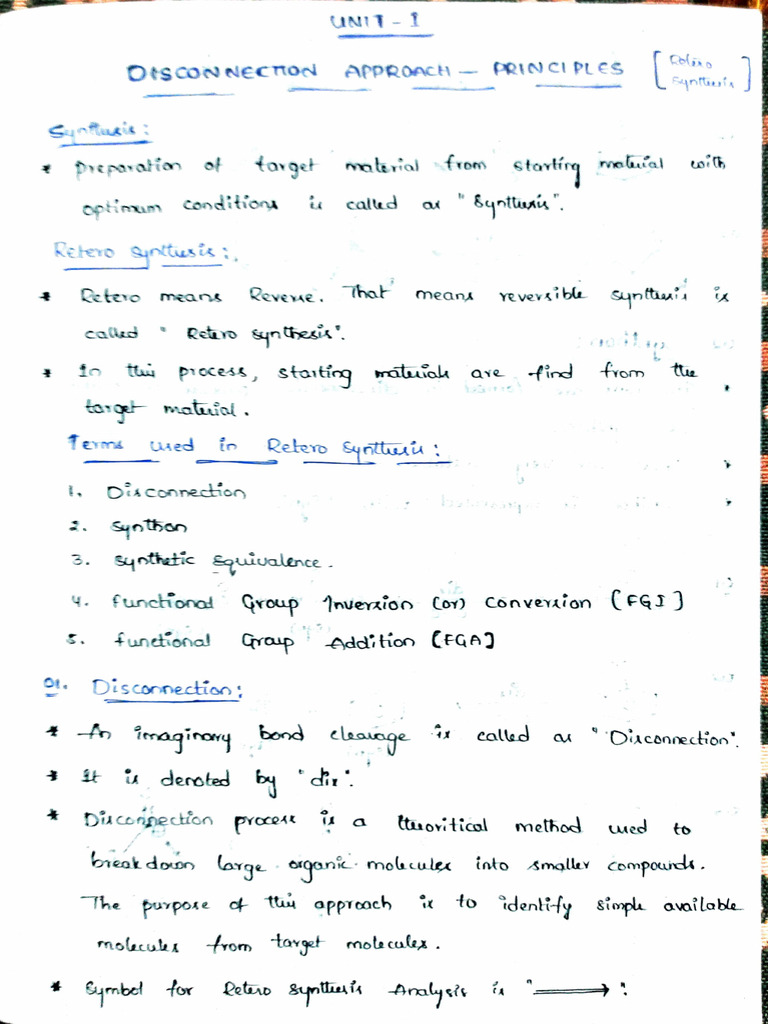 UNIT - I
DISCONNECTION APPROACH - PRINCIPLES [Retero Synthesis]
Synthesis:
* Preparation of target material from starting material with
optimum conditions is called as "Synthesis".
Retero synthesis:
* Retero means Reverse. That means reversible synthesis is
called "Retero synthesis".
* In this process, starting materials are find from the
target material.
Terms used in Retero Synthesis:
1. Disconnection
2. Synthon
3. Synthetic Equivalence.
4. Functional Group Inversion (or) Conversion [FGI]
5. Functional Group Addition [FGA]
01. Disconnection:
* An imaginary bond cleavage is called as "Disconnection".
* It is denoted by "dis".
* Disconnection process is a theoritical method used to
breakdown large organic molecules into smaller compounds.
The purpose of this approach is to identify simple available
molecules from target molecules.
* Symbol for Retero Synthesis Analysis is "⟹".